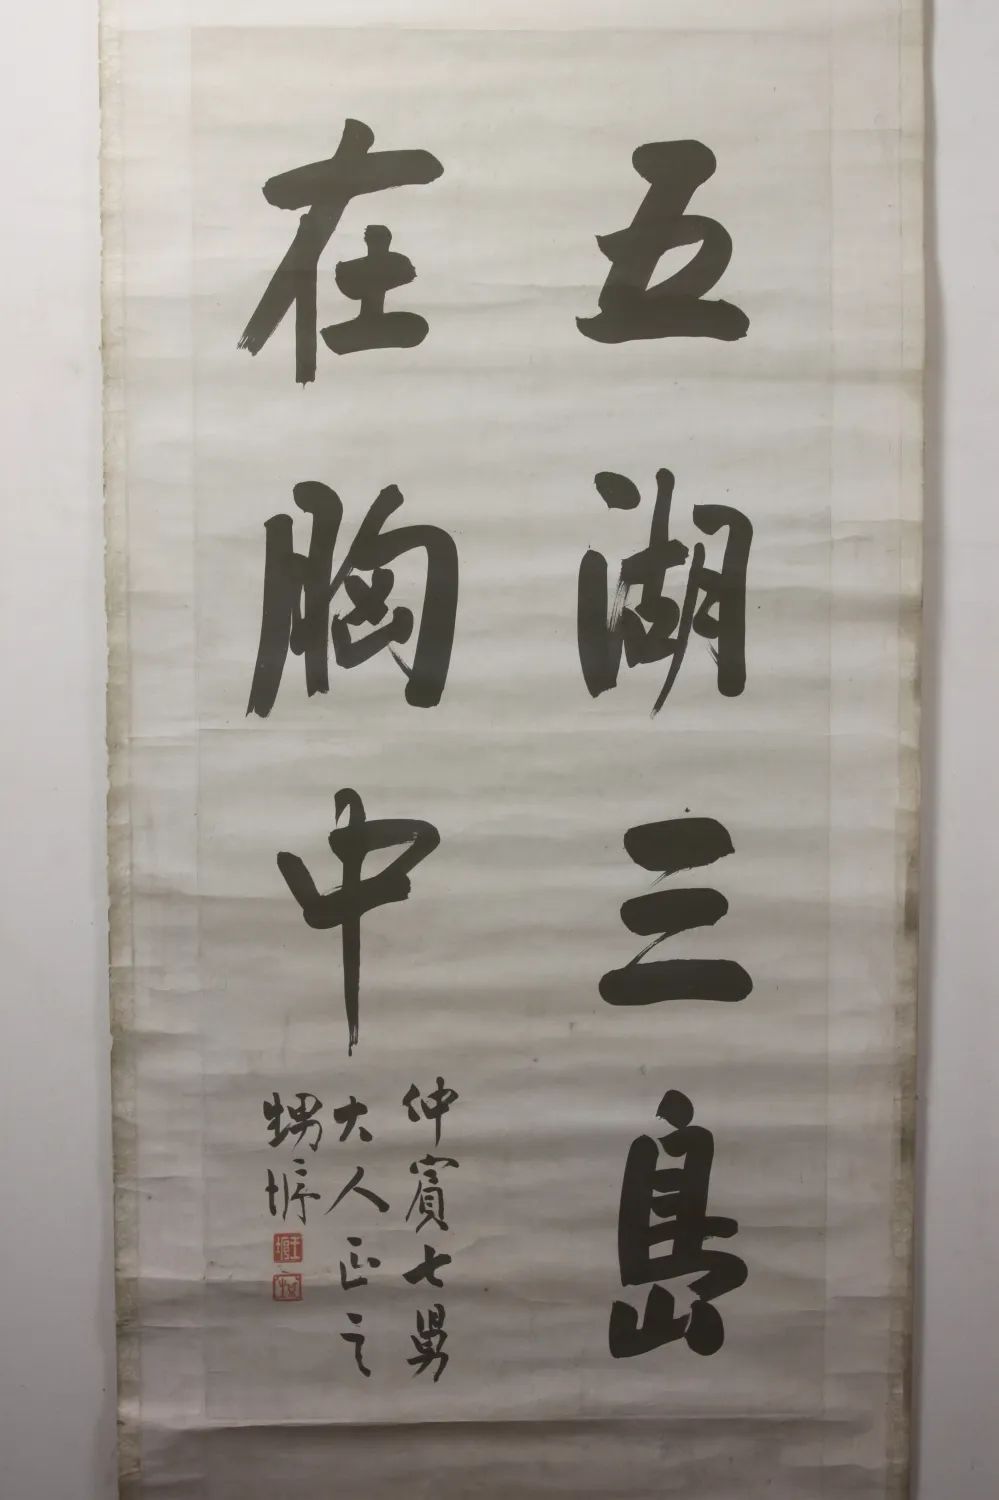 五湖三島
在胸中
仲賓七舅
大人正之
甥垿
王垿